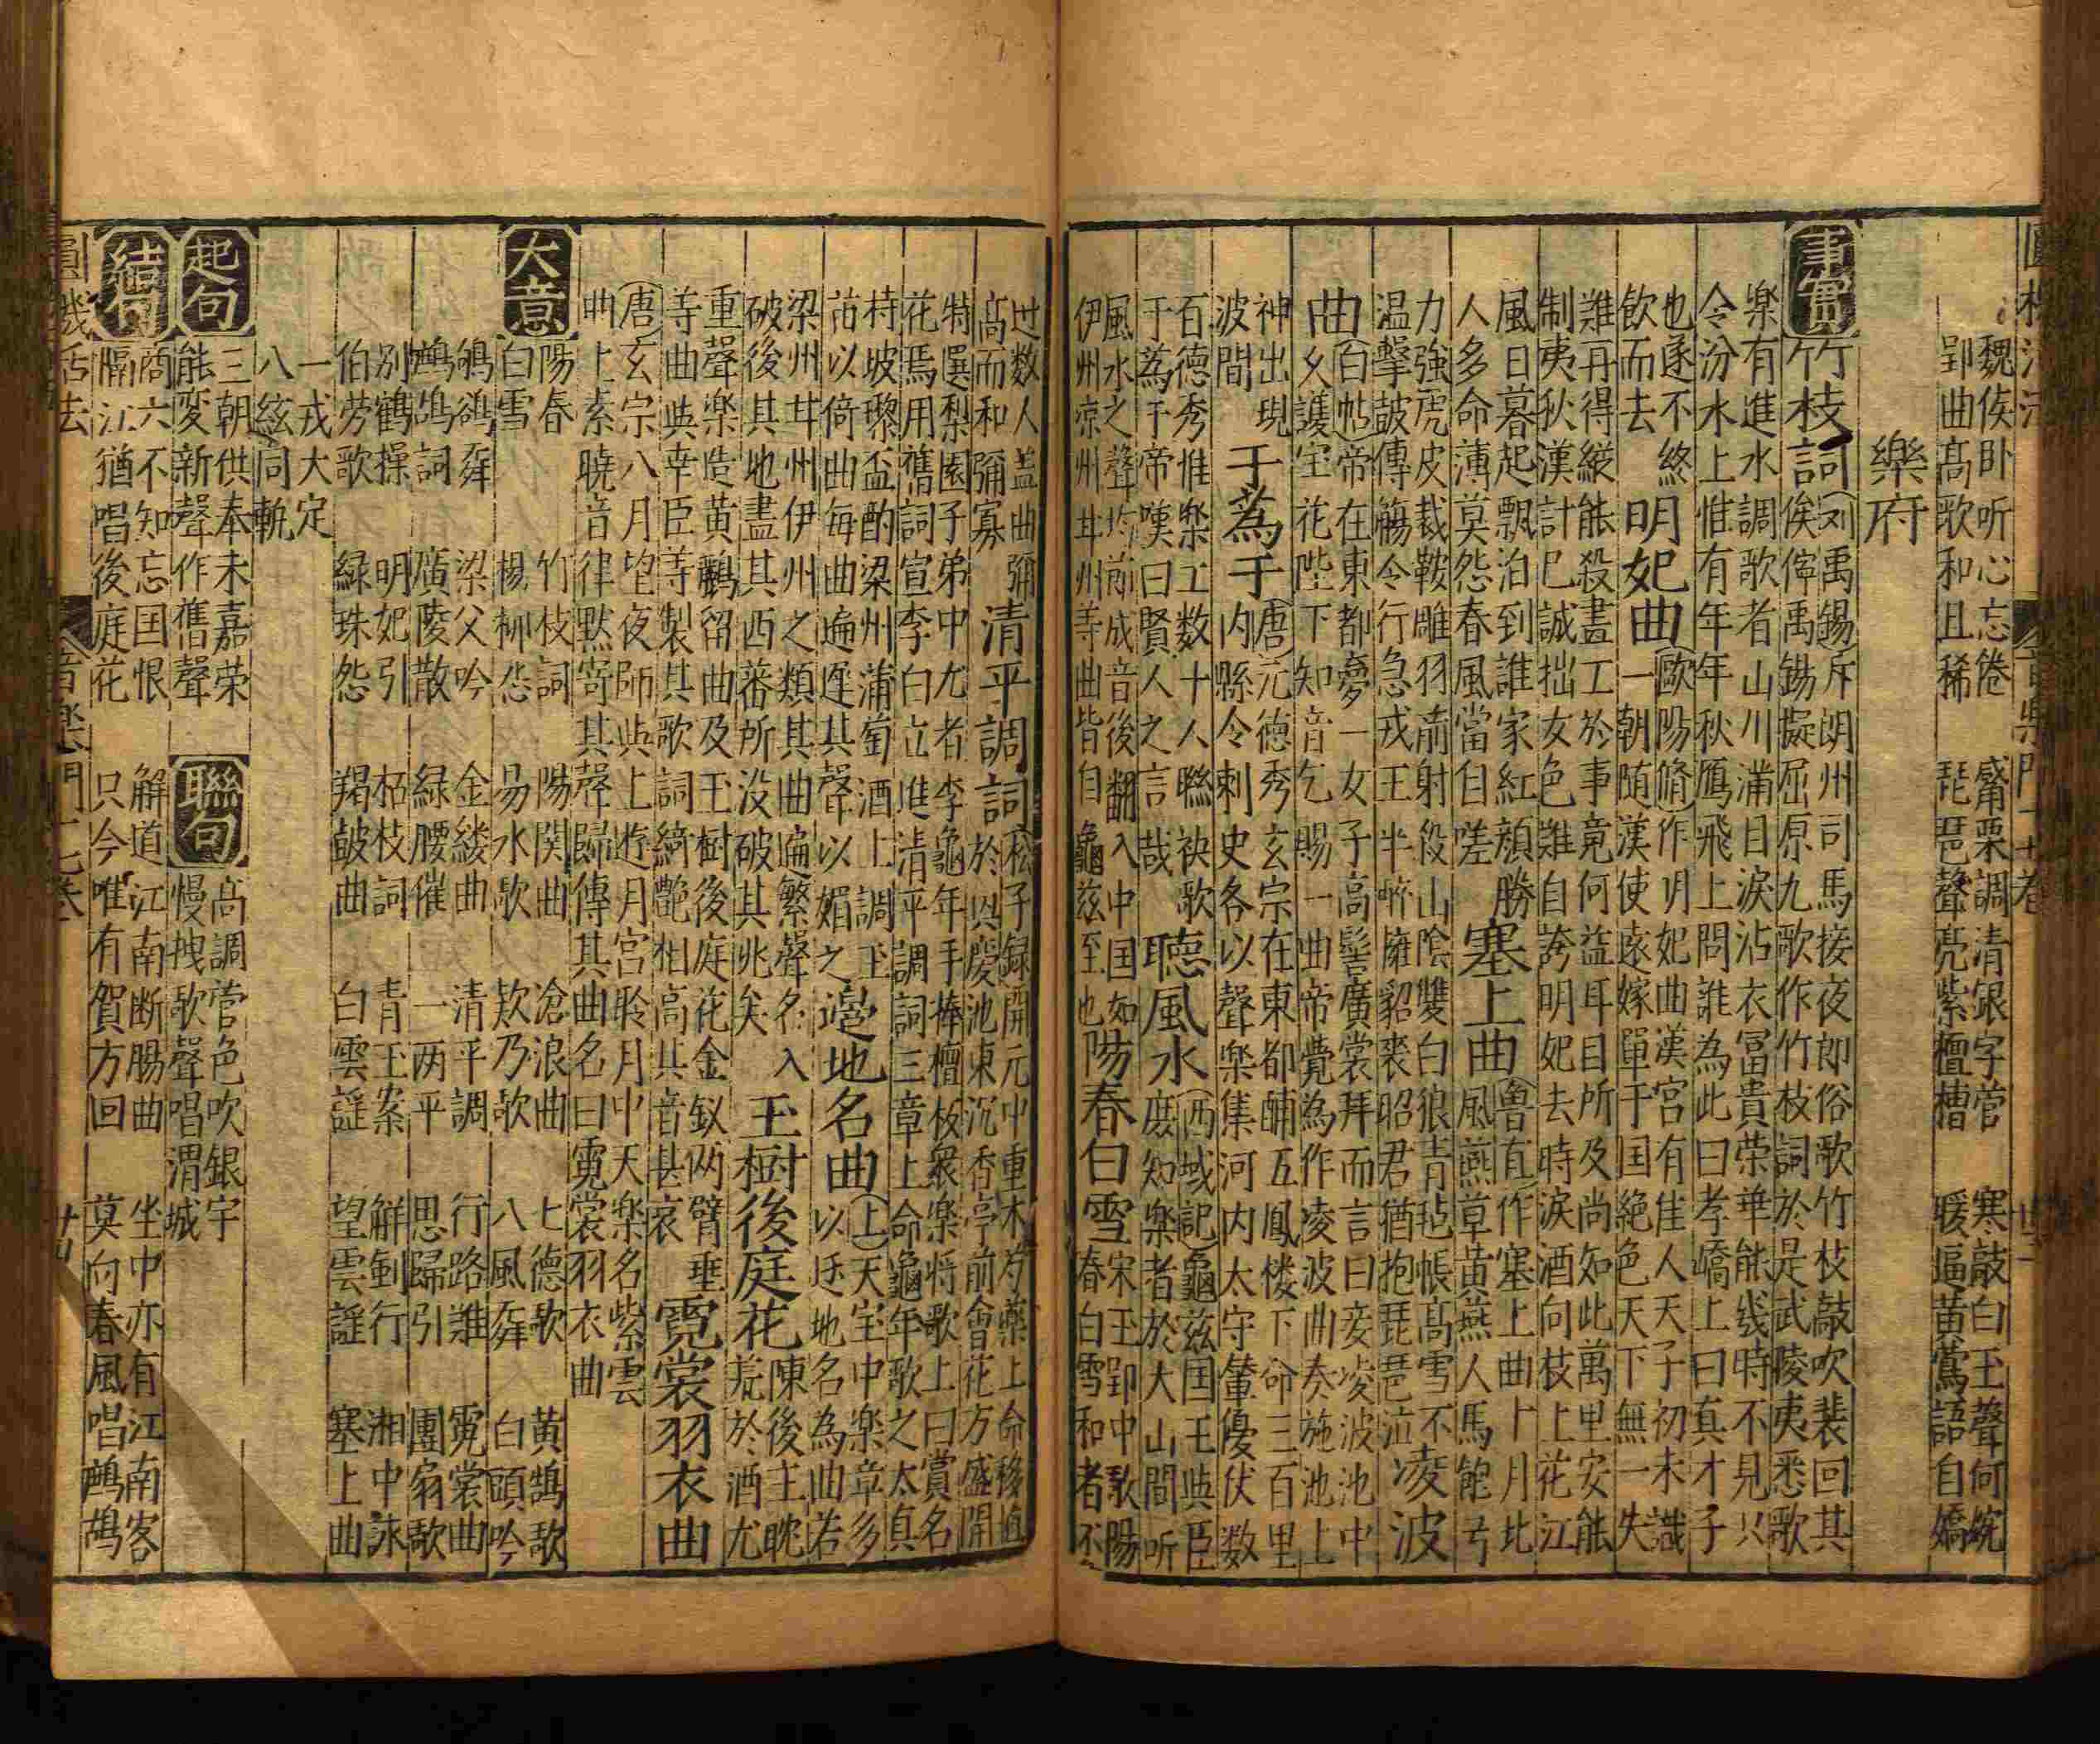 魏侯卧听心忘倦　觱栗調清銀字管　寒敲白玉聲何婉
郢曲高歌和且稀　琵琶聲亮紫檀槽　暖逼黄鶯語自嬌
樂府
事實
竹枝詞
刘禹錫斥朗州司馬接夜郎俗歌竹枝敲吹裴回其
俟儜禹錫擬屈原九歌作竹枝詞於是武陵夷悉歌
楽有進水調歌者山川滿目淚沾衣冨貴荣華能幾時不見只
令汾水上惟有年年秋鴈飛上問誰為此曰李嶠上曰真才子
也遂不終
飲而去
明妃曲
歐陽脩作明妃曲漢宮有佳人天子初未識
一朝随漢使逺嫁單于国絶色天下無一失
難再得縱能殺畫工於事竟何益耳目所及尚知此萬里安能
制夷狄漢計已誠拙女色難自誇明妃去時淚洒向枝上花江
風日暮起飄泊到誰家紅顔勝
人多命薄莫怨春風當自嗟
塞上曲
魯直作塞上曲十月北
風燕草黄燕人馬飽弓
力強虎皮裁鞍雕羽箭射段山陰雙白狼青毡帳高雪不
温擊皷傳觴令行急戎王半醉擁貂裘昭君猶抱琵琶泣
凌波
曲
白帖帝在東都夢一女子高髻廣裳拜而言曰妾凌波池中
女護宝花陛下知音乞賜一曲帝覺為作凌波曲奏施池上
神出現
波間
于蒍于
唐元德秀玄宗在東都酺五鳳楼下命三百里
内縣令刺史各以聲楽集河内太守輦優伏数
百德秀惟楽工数十人聯袂歌
于蒍于帝嘆曰賢人之言哉
聴風水
西域記龜兹国王與臣
庶知楽者於大山間听
風水之聲均前成音後翻入中国如
伊州凉州甘州等曲皆自龜兹至也
陽春白雪
宋玉郢中歌陽
春白雪和者不
过数人盖曲彌
高而和彌寡
清平調詞
松子録開元中重木芍薬上命移植
於興慶池東沉香亭前會花方盛開
特選梨園子弟中尤者李龜年手捧檀板衆楽将歌上曰賞名
花焉用舊詞宣李白立進清平調詞三章上命龜年歌之太真
持坡瓈盃酌梁州蒲萄酒上調玉
苖以倚曲每曲遍遅其聲以媚之
邉地名曲
上天宝中楽章多
以邉地名為曲若
梁州甘州伊州之類其曲遍繁聲名入
破後其地盡其西蕃所没破其兆矣
玉樹後庭花
陳後主眈
荒於酒尤
重聲楽造黄鸝留曲及玉樹後庭花金釵两臂垂
等曲與幸臣等製其歌詞綺艶相高其音甚哀
霓裳羽衣曲
唐玄宗八月望夜師與上遊月宮聆月中天楽名紫雲
曲上素曉音律黙寄其聲歸傳其曲名曰霓裳羽衣曲
大意
陽春　竹枝詞　陽関曲　滄浪曲　七德歌　黄鵠歌
白雪　楊柳怨　易水歌　欸乃歌　八風舜　白頭吟
鸲鹆舜　梁父吟　金縷曲　清平調　行路難　霓裳曲
鹧鸪詞　廣陵散　緑腰催　一两平　思歸引　團扇歌
别鶴操　明妃引　栢枝詞　青玉案　觧劍行　湘中詠
伯劳歌　緑珠怨　羯皷曲　白雲謡　望雲謡　塞上曲
一戎大定
八絃同軌
起句
三朝供奉未嘉荣
能変新聲作舊聲
聯句
高調管色吹銀字
慢拽歌聲唱渭城
結句
商六不知忘国恨　解道江南断腸曲　坐中亦有江南客
隔江猶唱後庭花　只今唯有賀方回　莫向春風唱鹧鸪